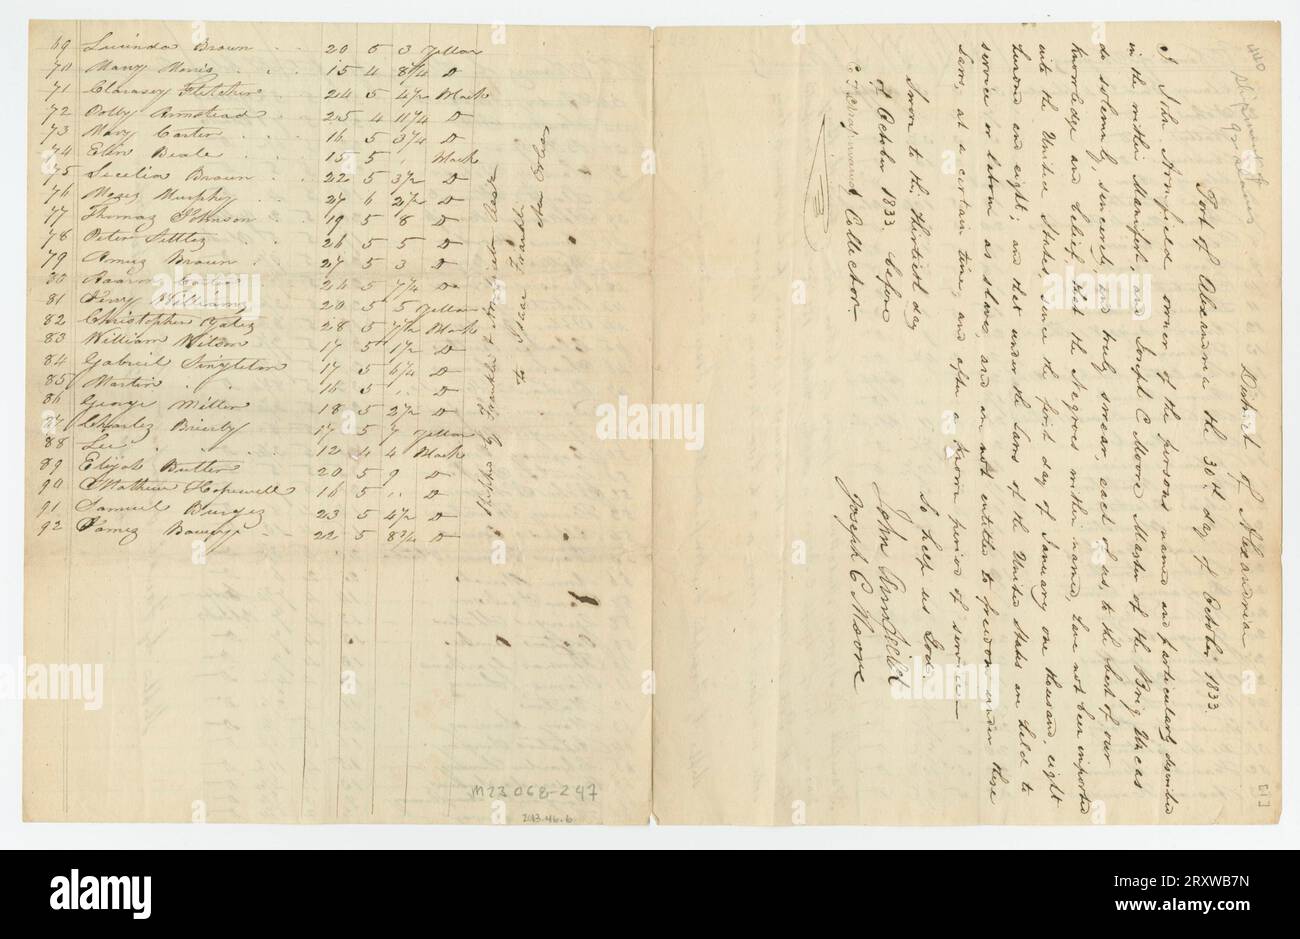 69 Lucinda Brown 20 5 3 Yellow
70 Mary Morris 15 4 8¼ D
71 Clarasey Fletcher 24 5 4½ Black
72 Dolly Armstead 25 4 11¼ D
73 Mary Carter 16 5 3¼ D
74 Ellen Beale 15 5 Black
75 Secelia Brown 22 5 3½ D
76 Moses Murphy 27 6 2½ D
77 Thomas Johnson 19 5 8 D
78 Peter Settles 26 5 5 D
79 Amus Brown 27 5 3 D
80 Aaron 24 5 7¼ D
81 Williams 20 5 5 Yellow
82 Christopher Yates 28 5 7½ Black
83 William Wilson 17 5 1½ D
84 Gabriel Singleton 17 5 6¼ D
85 Martin 16 5 D
86 George Miller 18 5 2½ D
87 Charles Brierly 17 5 7 Yellow
88 Lee 12 4 4 Black
89 Elijah Butler 20 5 9 D
90 Mathew Hopewell 16 5 D
91 Samuel Burges 23 5 4½ D
92 James 22 5 8¾ D
Shipped by Franklin & Armfield
to Isaac Franklin
New Orleans
M23 068-247
2013.46.6
District of Alexandria
Port of Alexandria the 30th day of October 1833.
I John Armfield owner of the persons named and particularly described
in the within Manifest, and Joseph C Moore Master of the Brig Uncas
do solemnly, sincerely, and truly swear, each of us, to the best of our
knowledge and belief, that the Negroes within named, have not been imported
into the United States, since the first day of January one thousand, eight
hundred and eight; and that under the laws of the United States are held to
service or labour as slaves and are not entitled to freedom under these
laws, at a certain time, and after a known period of service
So help us God.
John Armfield
Joseph C Moore
Sworn to this thirtieth day
of October 1833. before
Collector.
[17]
alamy
Image ID: 2RXWB7N
www.alamy.com